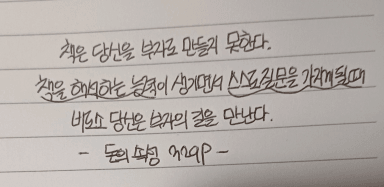 책은 당신을 부자로 만들지 못한다.
책을 해석하는 능력이 생기면서 스스로 질문을 가지게 될 때
비로소 당신은 부자의 길을 만난다.
- 돈의 속성 322P -